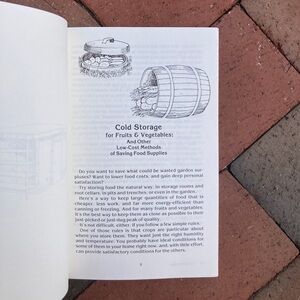 Cold Storage
for Fruits & Vegetables:
And Other
Low-Cost Methods
of Saving Food Supplies
Do you want to save what could be wasted garden sur-
pluses? Want to lower food costs, and gain deep personal
satisfaction?
Try storing food the natural way: in storage rooms and
root cellars, in pits and trenches, or even in the garden.
Here's a way to keep large quantities of food that is
cheaper, less work, and far more energy-efficient than
canning or freezing. And for many fruits and vegetables,
it's the best way to keep them as close as possible to their
just-picked or just-dug peak of quality.
It's not difficult, either, if you follow a few simple rules.
One of those rules is that crops are particular about
where you store them. They want just the right humidity
and temperature. You probably have ideal conditions for
some of them in your home right now, and, with little effort,
can provide satisfactory conditions for the others.